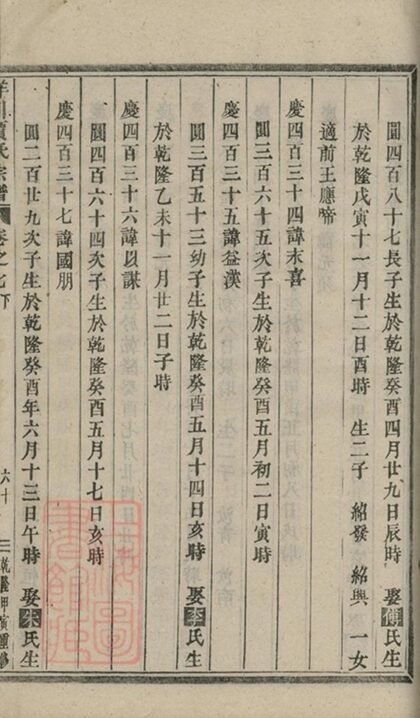 圓四百八十七長子生於乾隆癸酉四月廿九日辰時 娶傅氏生
於乾隆戊寅十一月十二日酉時 生二子 紹發 紹興 一女
適前王應帝
慶四百三十四諱永喜
圓三百六十五次子生於乾隆癸酉五月初二日寅時
慶四百三十五諱益漢
圓三百五十三幼子生於乾隆癸酉五月十四日亥時 娶李氏生
於乾隆乙未十一月廿二日子時
慶四百三十六諱以謀
圓四百六十四次子生於乾隆癸酉五月十七日亥時
慶四百三十七諱國朋
圓二百廿九次子生於乾隆癸酉年六月十三日午時 娶朱氏生
氏宗譜 卷之七下 六十三 乾隆甲寅重修